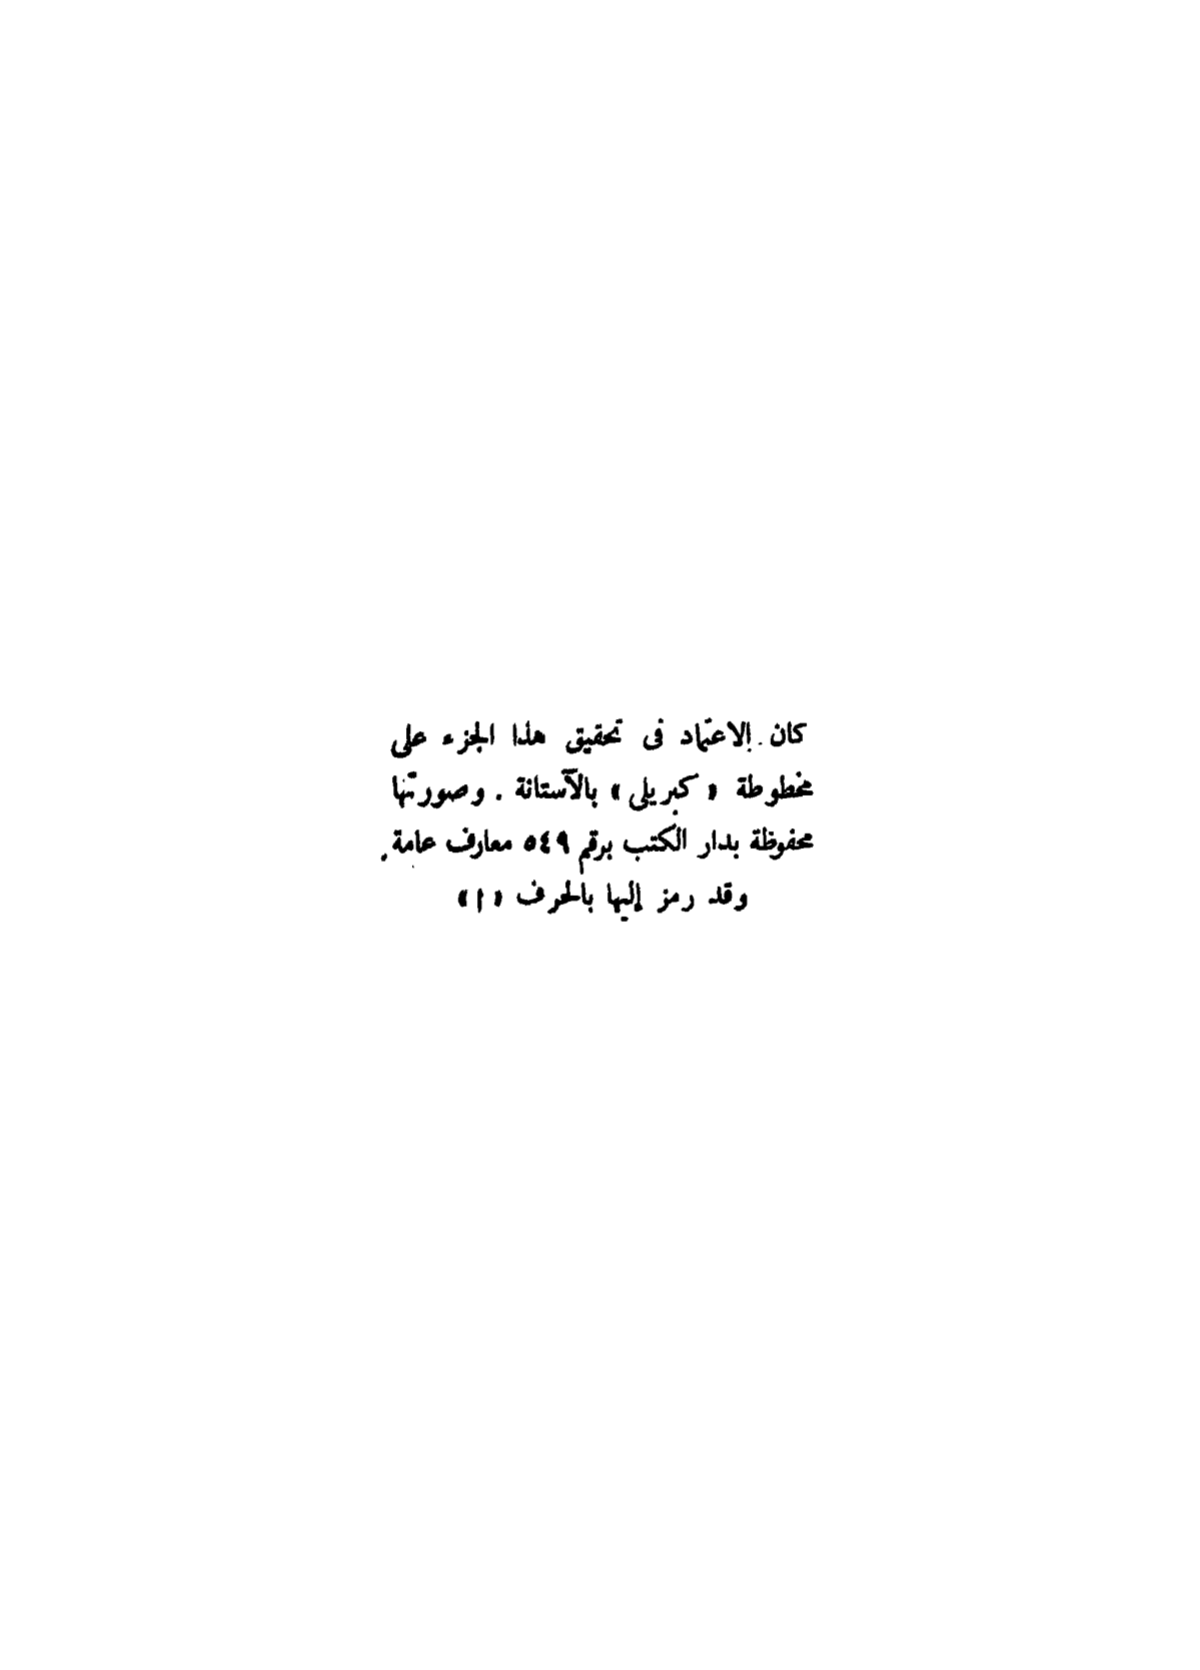 كان الاعتماد فى تحقيق هذا الجزء على
مخطوطة « كبريلى » بالآستانة . وصورتها
محفوظة بدار الكتب برقم ٥٤٩ معارف عامة .
وقد رمز إليها بالحرف « ا »